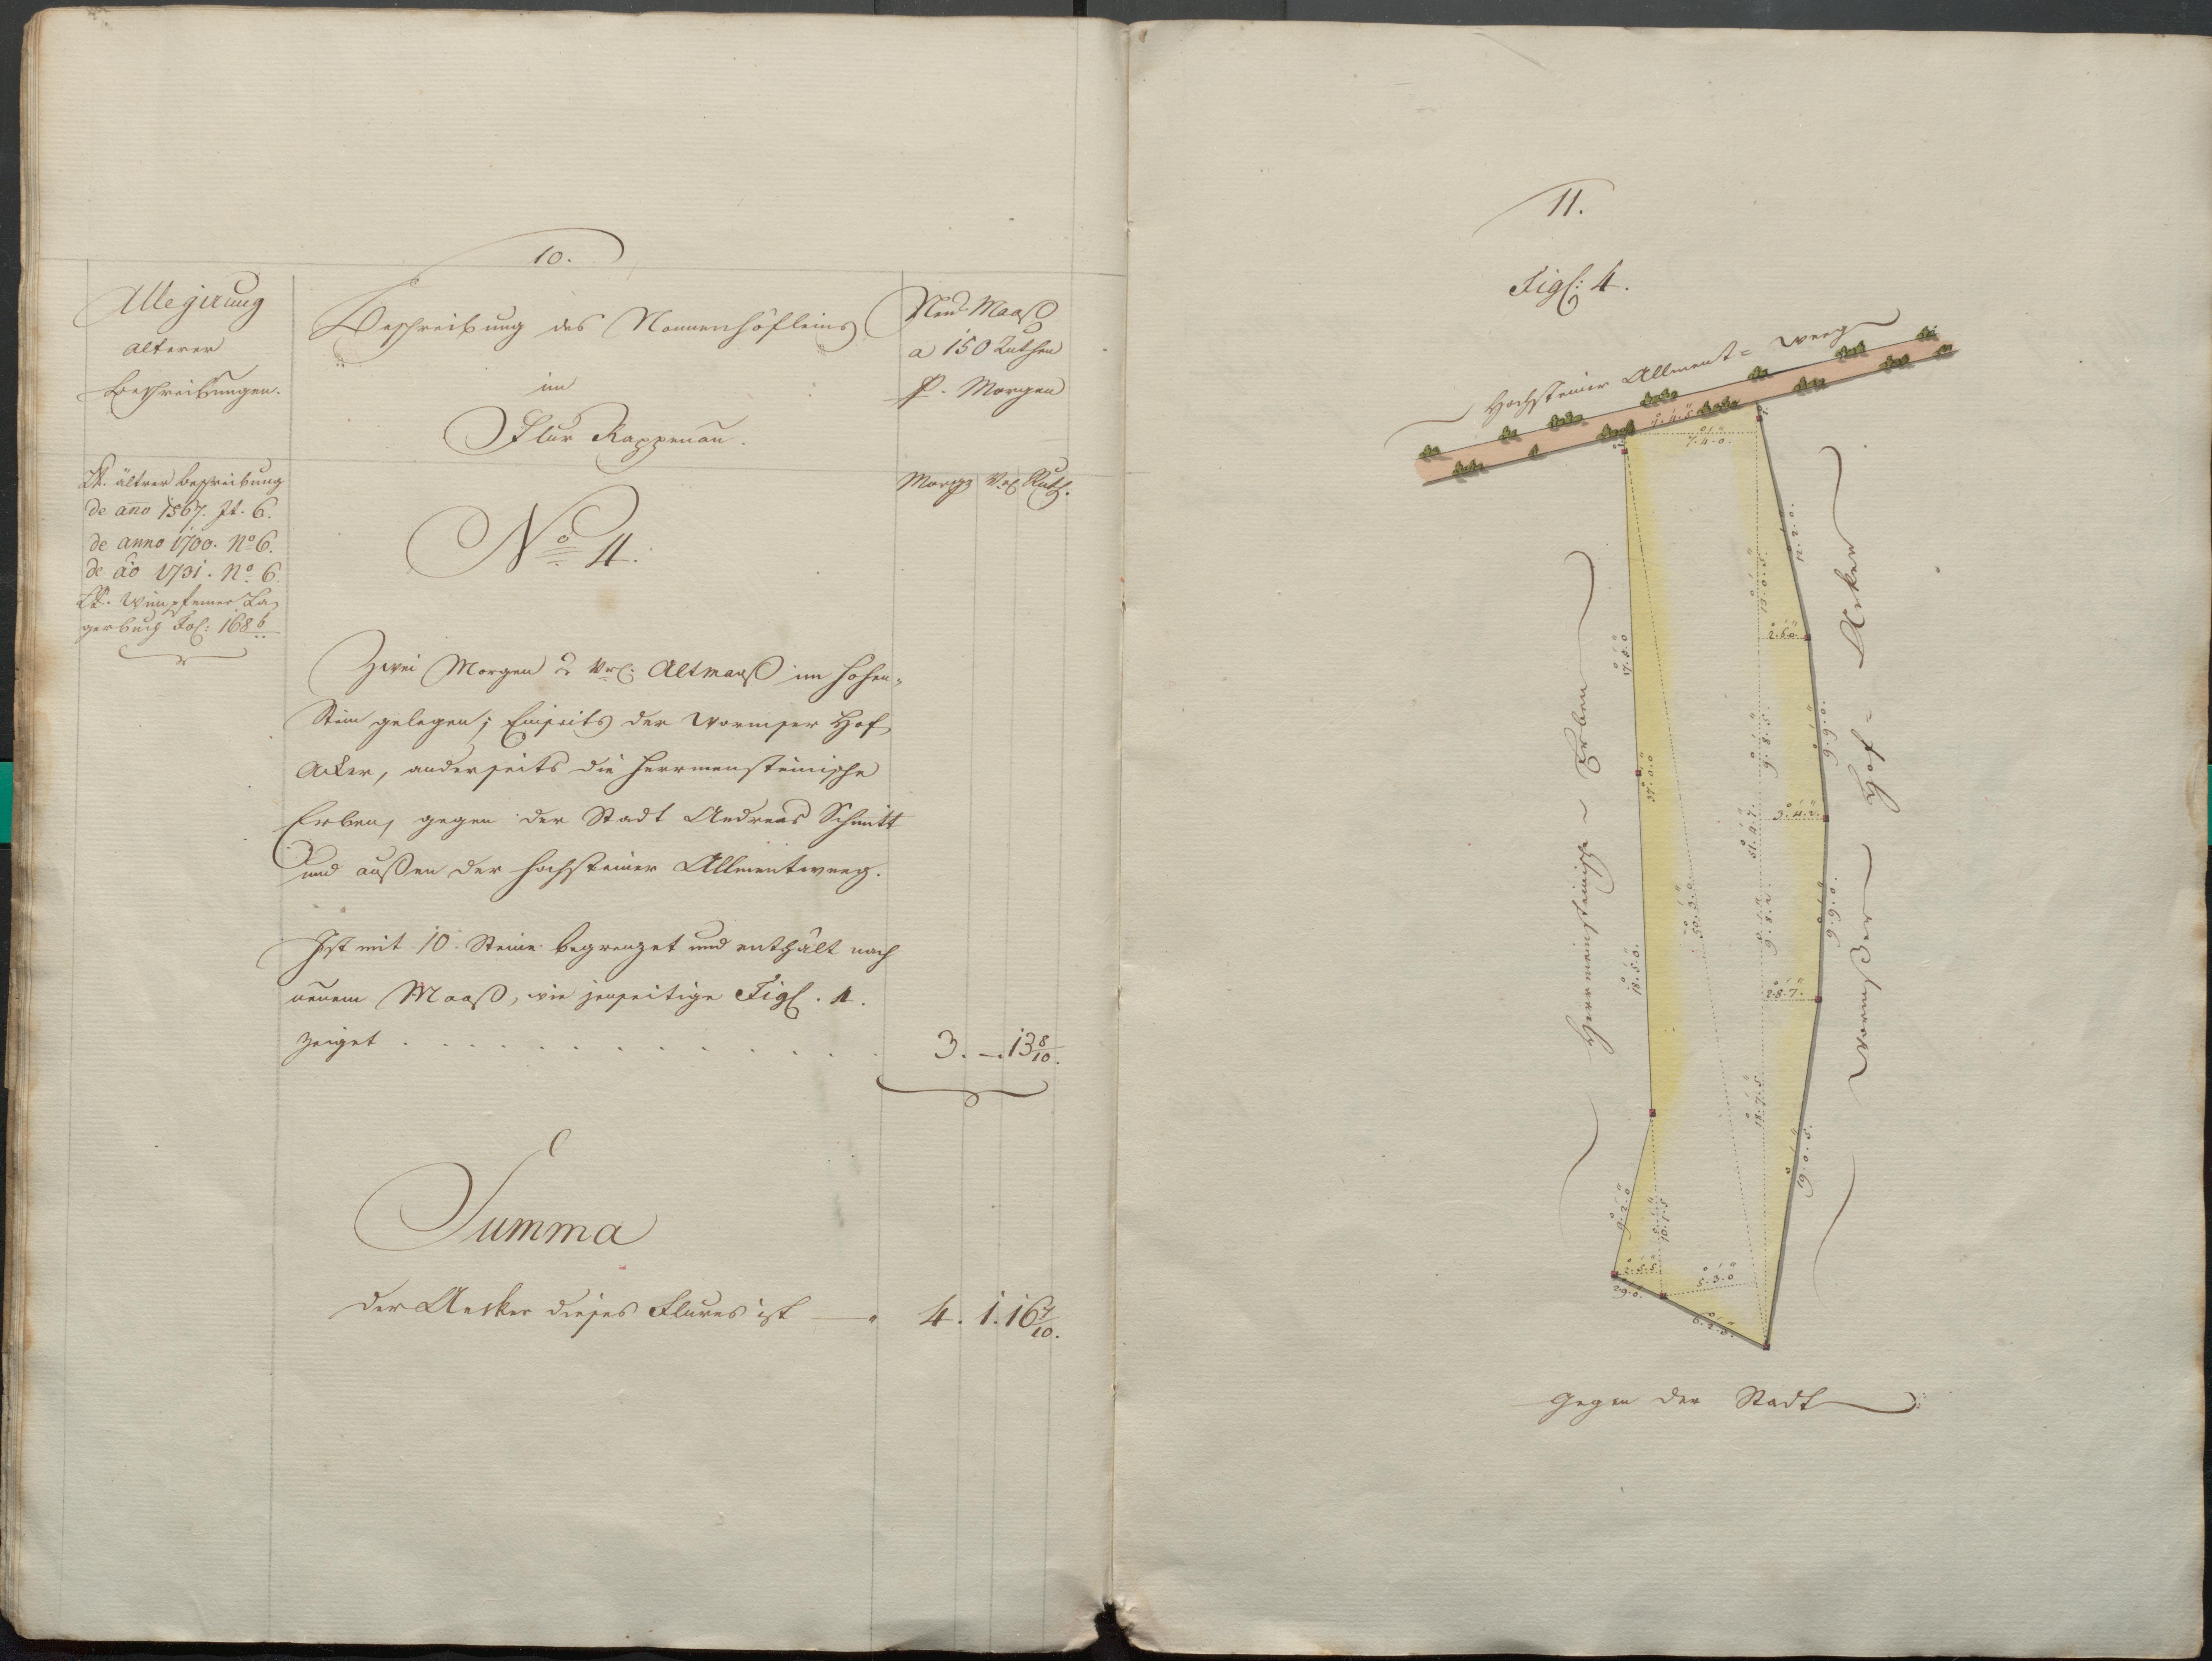 10.
Allegirung
älterer
Beschreibungen.
Beschreibung des Nonnenhöfleins
im
Flur Rappenau.
Neu Maaß
a 150 Ruthen
p. Morgen
Lt. ältrer Beschreibung
de año 1567. It. 6.
de anno 1700. No 6.
de ao 1731. No. 6.
Lt. Wimpfemer La
gerbuch Fol: 168b
Morgen Vrl. Ruth.
No 4.
Zwei Morgen 2 Vrl: Altmaaß im hohen-
Stein gelegen; Einseits der Wormser Hof
Acker, anderseits die Herrmensteinische
Erben, gegen der Stadt Andreas Schmitt
und außen der hochsteiner Allmentweeg.
Ist mit 10. Steine begrenzet und enthält nach
neuem Maaß, wie jenseitige Figl. 4.
zeiget . . . . . . . . . . . . . 3. –. 13 8/10.
Summa
der Aecker dieses Flures ist — 4. 1. 16 7/10.
11.
Figl: 4.
Hochsteiner Allment= weeg
9.4.5.
7.4.0.
12.2.0.
13.0.5.
2.6.0.
17.5.0
37.0.0
9.9.0.
9.8.5.
3.4.2.
51.4.7.
50.3.0
9.9.0.
9.8.2.
18.5.0.
2.8.7.
18.7.5.
19.0.5.
9.2.0
10.1.5
2.5.5
5.3.0
2.9.0.
6.2.5.
Herrmeinsteinische Erben
Wormßer Hof= Aecker
Gegen der Stadt